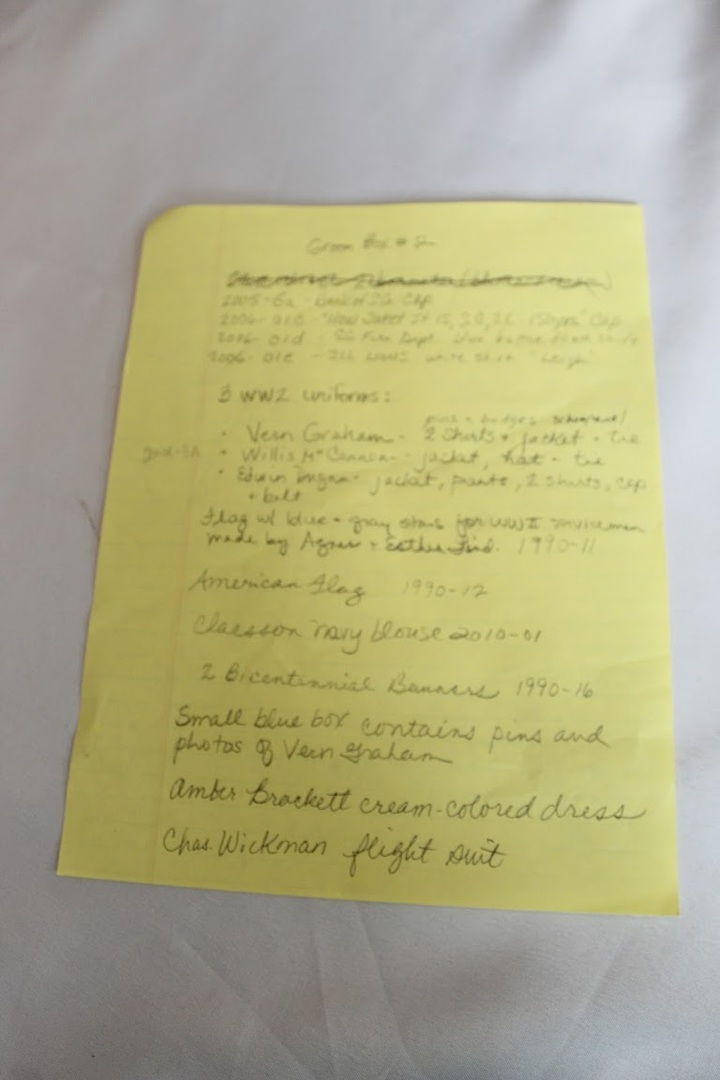 Green Box # 2
2005-6a - Bank of SG Cap
2006-01c - "How Sweet It Is, SG, IL 150 yrs" Cap
2006-01d - SG Fire Dept. blue
2006-01e - white shirt
3 WW2 uniforms:
pins + badges
• Vern Graham - 2 shirts + jacket + tie
• Willis McCannon - jacket, hat + tie
• Edwin - jacket, pants, 2 shirts, cap
+ belt
Flag w/ blue + gray stars for WWII servicemen
made by Agnes + Esther Lind. 1990-11
American Flag 1990-12
Claesson navy blouse 2010-01
2 Bicentennial Banners 1990-16
Small blue box contains pins and
photos of Vern Graham
Amber Brackett cream-colored dress
Chas. Wickman flight suit